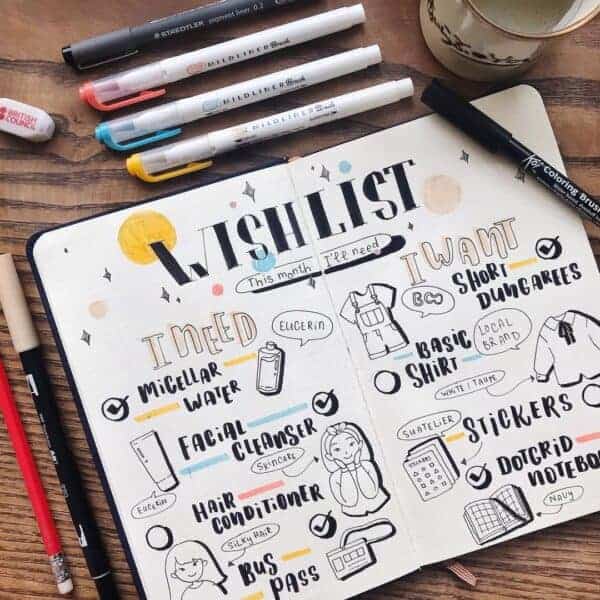 STAEDTLER pigment liner 0.2
MILDLINER Brush
MILDLINER Brush
MILDLINER Brush
BRITISH COUNCIL
Coloring Brush
WISHLIST
This month I'll need
I NEED
EUCERIN
MICELLAR
WATER
FACIAL
CLEANSER
SKINCARE
EUCERIN
HAIR
CONDITIONER
SILKY HAIR
BUS
PASS
I WANT
SHORT
DUNGAREES
BASIC
SHIRT
LOCAL
BRAND
WHITE / TAUPE
STICKERS
SUATELIER
STICKERS
DOTGRID
NOTEBOOK
NAVY